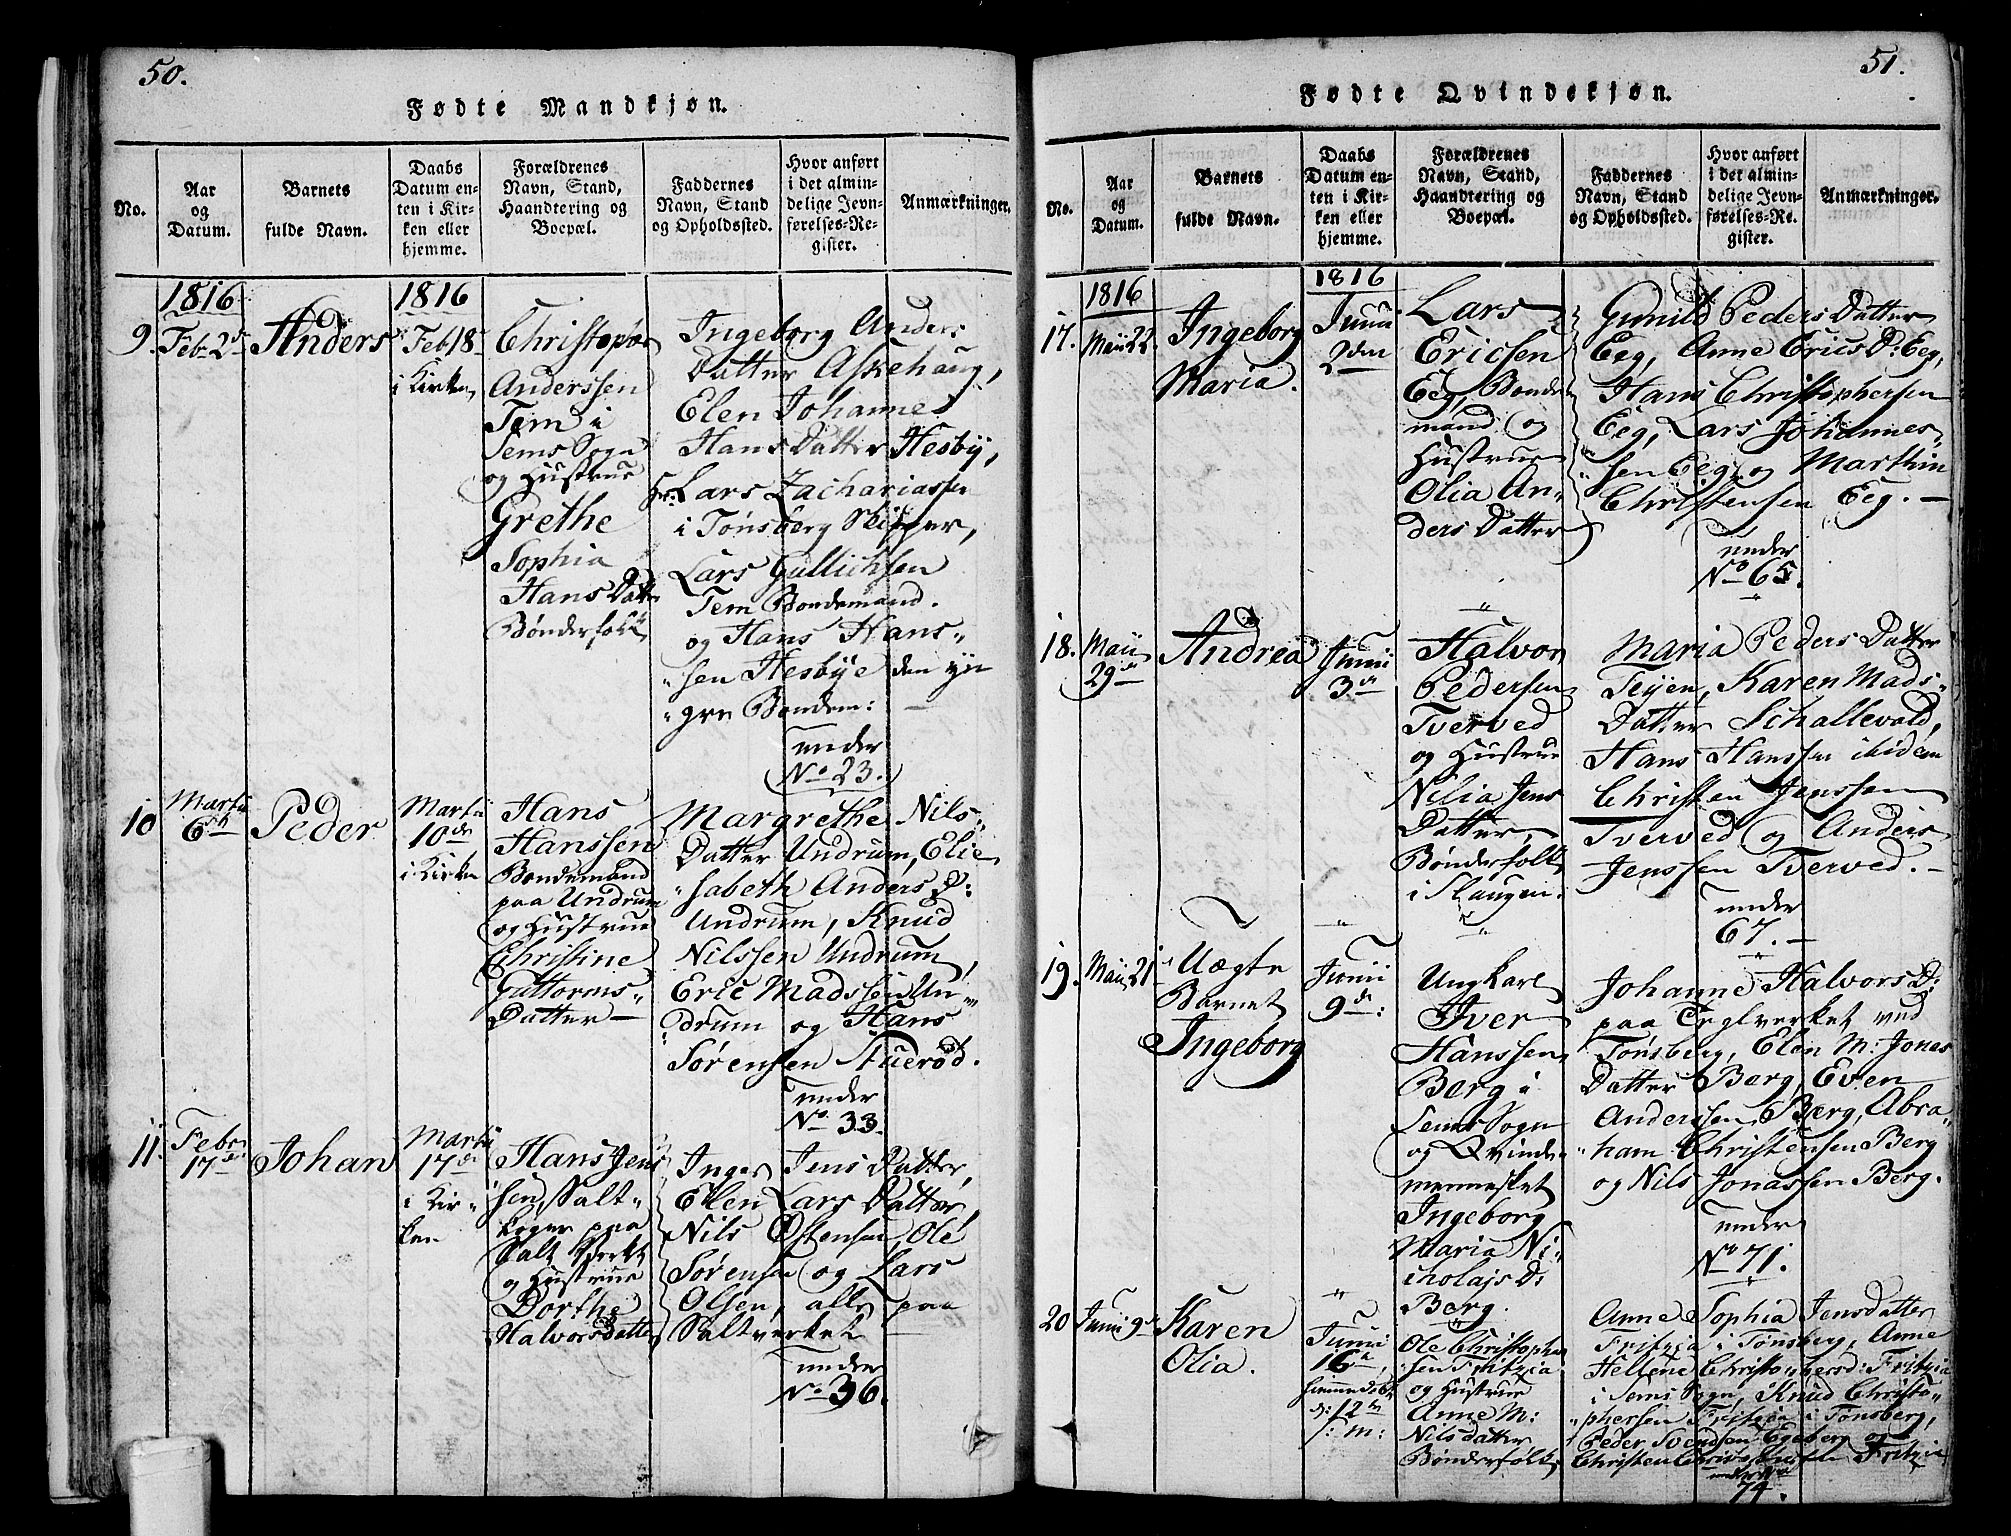 50.
Fødte Mandkjøn.
No.
Aar
og
Datum.
Barnets
fulde Navn.
Daabs
Datum en-
ten i Kir-
ken eller
hjemme.
Forældrenes
Navn, Stand,
Haandtering og
Boepæl.
Faddernes
Navn, Stand
og Opholdssted.
Hvor anført
i det almin-
delige Jevn-
førelses-Re-
gister.
Anmærkninger.
1816
9.
Feb 2den
Anders
1816
Feb 18
i Kirken
Christophr
Anderssen
Tem i
Sems Sogn
og Hustrue
Grethe
Sophia
Hans Datter
Bønderfolk
Ingeborg Anders
Datter Askehaug,
Elen Johanne
Hans Datter Hesby,
Hr: Lars Zachariassen
i Tønsberg Skipper,
Lars Gullichsen
Tem Bondemand.
og Hans Hans-
"sen Hesbye den yn
"gre Bondem:
under
No 23.
10
Martii
6te
Peder
Martii
10de
i Kirken
Hans
Hanssen
Bondemand
paa Undrum
og Hustrue
Christine
Guttorms-
Datter
Margrethe Nils-
Datter Undrum, Elie
"sabeth Anders D:
Undrum, Knud
Nilssen Undrum,
Eric Madssen Un-
drum og Hans
Sørensen Auerød.
under
No 33.
11.
Febr
17de
Johan
Martii
17de
i Kir-
ken
Hans Jens
sen, Salt-
koger paa
Salt Verket
og Hustrue
Dorthe
Halvorsdatter
Inger Jens Datter,
Elen Lars Datter,
Nils Østensen, Ole
Sørensen og Lars
Olsen, alle paa
Saltverket
under
No 36.
51.
Fødte Qvindekjøn.
No.
Aar
og
Datum.
Barnets
fulde Navn.
Daabs
Datum en-
ten i Kir-
ken eller
hjemme.
Forældrenes
Navn, Stand,
Haandtering og
Boepæl.
Faddernes
Navn, Stand
og Opholdssted.
Hvor anført
i det almin-
delige Jevn-
førelses-Re-
gister.
Anmærkninger.
1816
17.
Maii 22.
Ingeborg
Maria.
1816
Junii
2den
Lars
Ericsen
Eeg, Bonde
mand og
Hustrue
Olia An-
ders Datter
Gunild Peders Datter
Eeg, Anne Erics D: Eeg,
Hans Christophersen
Eeg, Lars Johannes-
"sen Eeg og Marthin
Christensen Eeg. —
under
No 65.
18.
Maii
29de
Andrea
Junii
3de
Halvor
Pedersen
Tverved
og Hustrue
Nilia Jens
Datter,
Bønderfolk
i Slaugen.
Maria Peders Datter
Teijen, Karen Mads-
Datter Schallevald,
Hans Hanssen ibidem
Christen Jenssen
Tverved og Anders
Jenssen Tverved. —
under
67. —
19.
Maii 21
Uægte
Barnet
Ingeborg
Junii
9de:
Ungkarl
Iver
Hanssen
Berg i
Sems Sogn
og Qvinde
mennesket
Ingeborg
Maria Ni-
cholajs D:
Berg.
Johanne Halvors D:
paa Teglverket ved
Tønsberg, Elen M: Jonas
Datter Berg, Even
Anderssen Berg, Abra-
"ham Christensen Berg
og Nils Jonassen Berg.
under
No 71.
20
Junii 9de
Karen
Olia.
Junii
16de
d: 12te
Ole Christopher
"sen Fritzia
og Hustrue
Anne M:
Nilsdatter
Bønderfolk
Anne Sophia Jensdatter
Fritzia i Tønsberg, Anne
Hellene Christophersd: Fritzia
i Sems Sogn, Knud Christo-
"phersen Fritzia i Tønsberg,
Peder Svendsen Egeberg og
Christen Fritzia
under No
74.